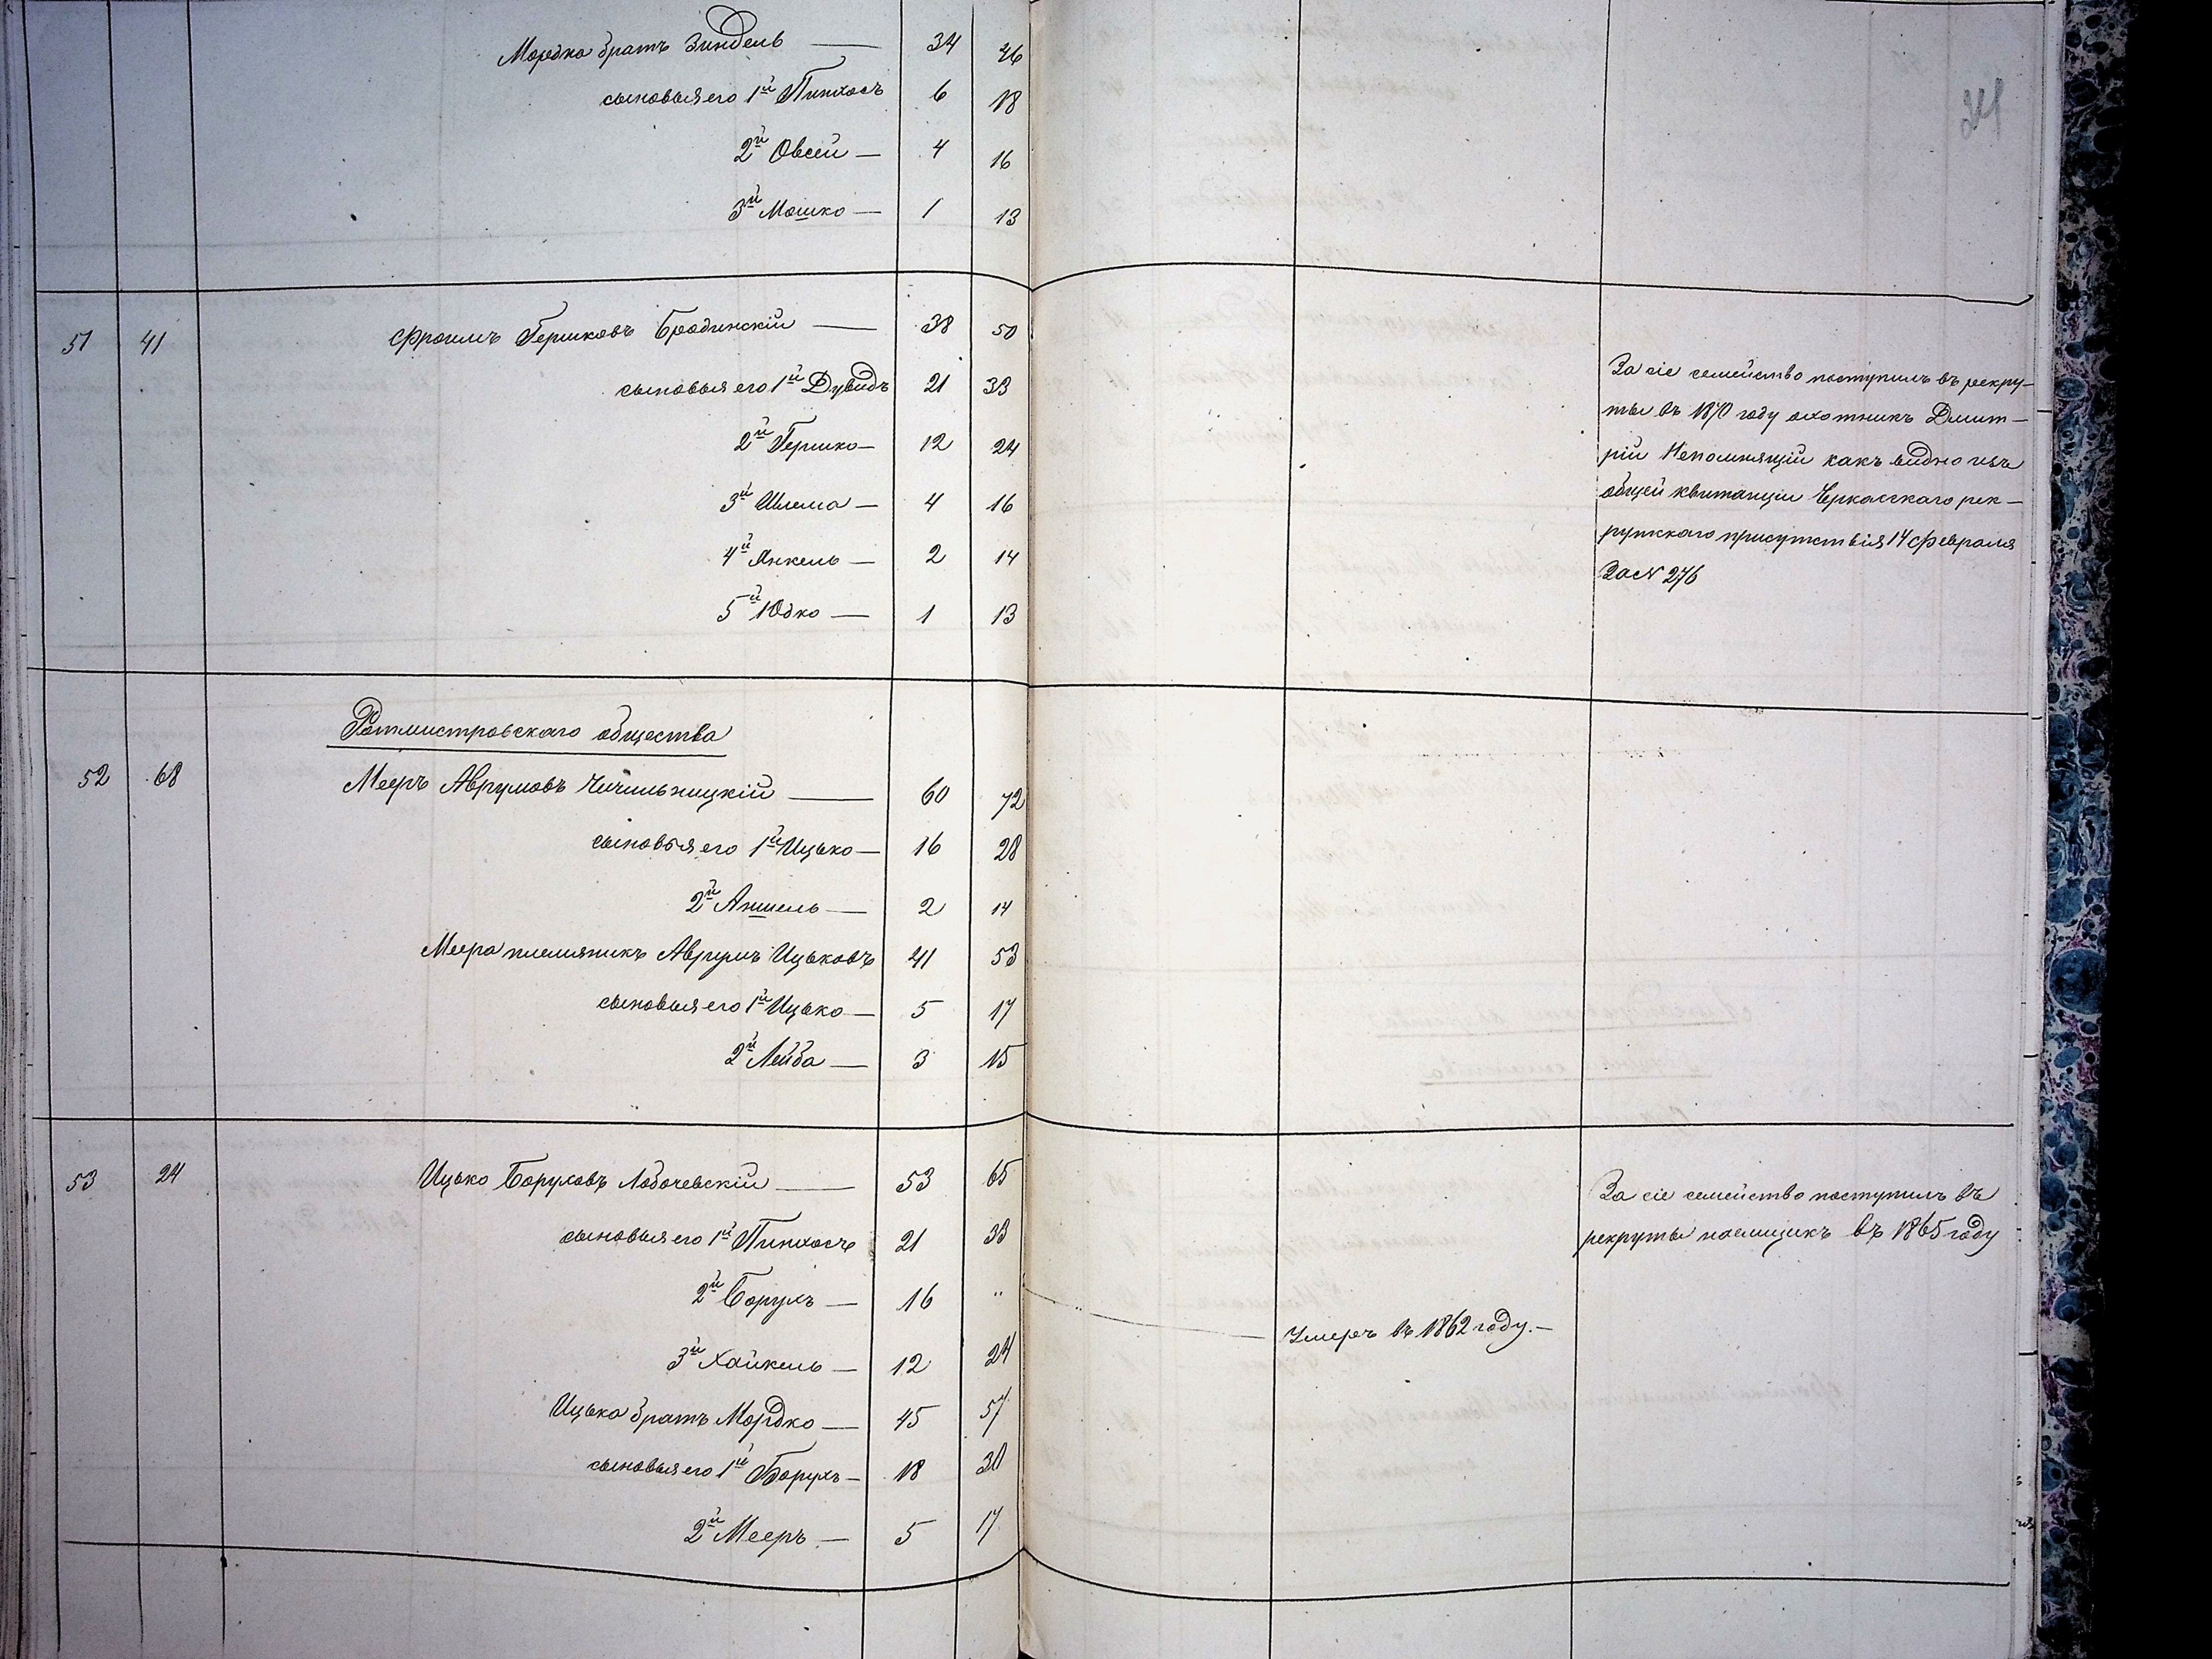 Мордка братъ Зиндель — 34 46
сыновья его 1й Пинхосъ 6 18
2й Овсей — 4 16
3й Мошко — 1 13
51 41 Фроимъ Гершковъ Бродинскій — 38 50
сыновья его 1й Дувидъ 21 33
2й Гершко — 12 24
3й Шлема — 4 16
4й Янкель — 2 14
5й Юдко — 1 13
За сіе семейство поступилъ въ рекру-
ты въ 1870 году охотникъ Дмит-
рій Непомнящій какъ видно изъ
общей квитанціи Черкасскаго рек-
рутскаго присутствія 14 Февраля
За № 276
Ротмистровскаго общества
52 68 Мееръ Аврумовъ Чечильницкій — 60 72
сыновья его 1й Ицько — 16 28
2й Аншель — 2 14
Меера племянникъ Аврумъ Ицьковъ 41 53
сыновья его 1й Ицько — 5 17
2й Лейба — 3 15
53 24 Ицько Боруховъ Лобачевскій — 53 65
сыновья его 1й Пинхосъ 21 33
2й Борухъ — 16 " — Умеръ въ 1862 году. —
3й Хайкель — 12 24
Ицька братъ Мордко — 45 57
сыновья его 1й Борухъ — 18 30
2й Мееръ — 5 17
За сіе семейство поступилъ въ
рекруты наемщикъ въ 1865 году